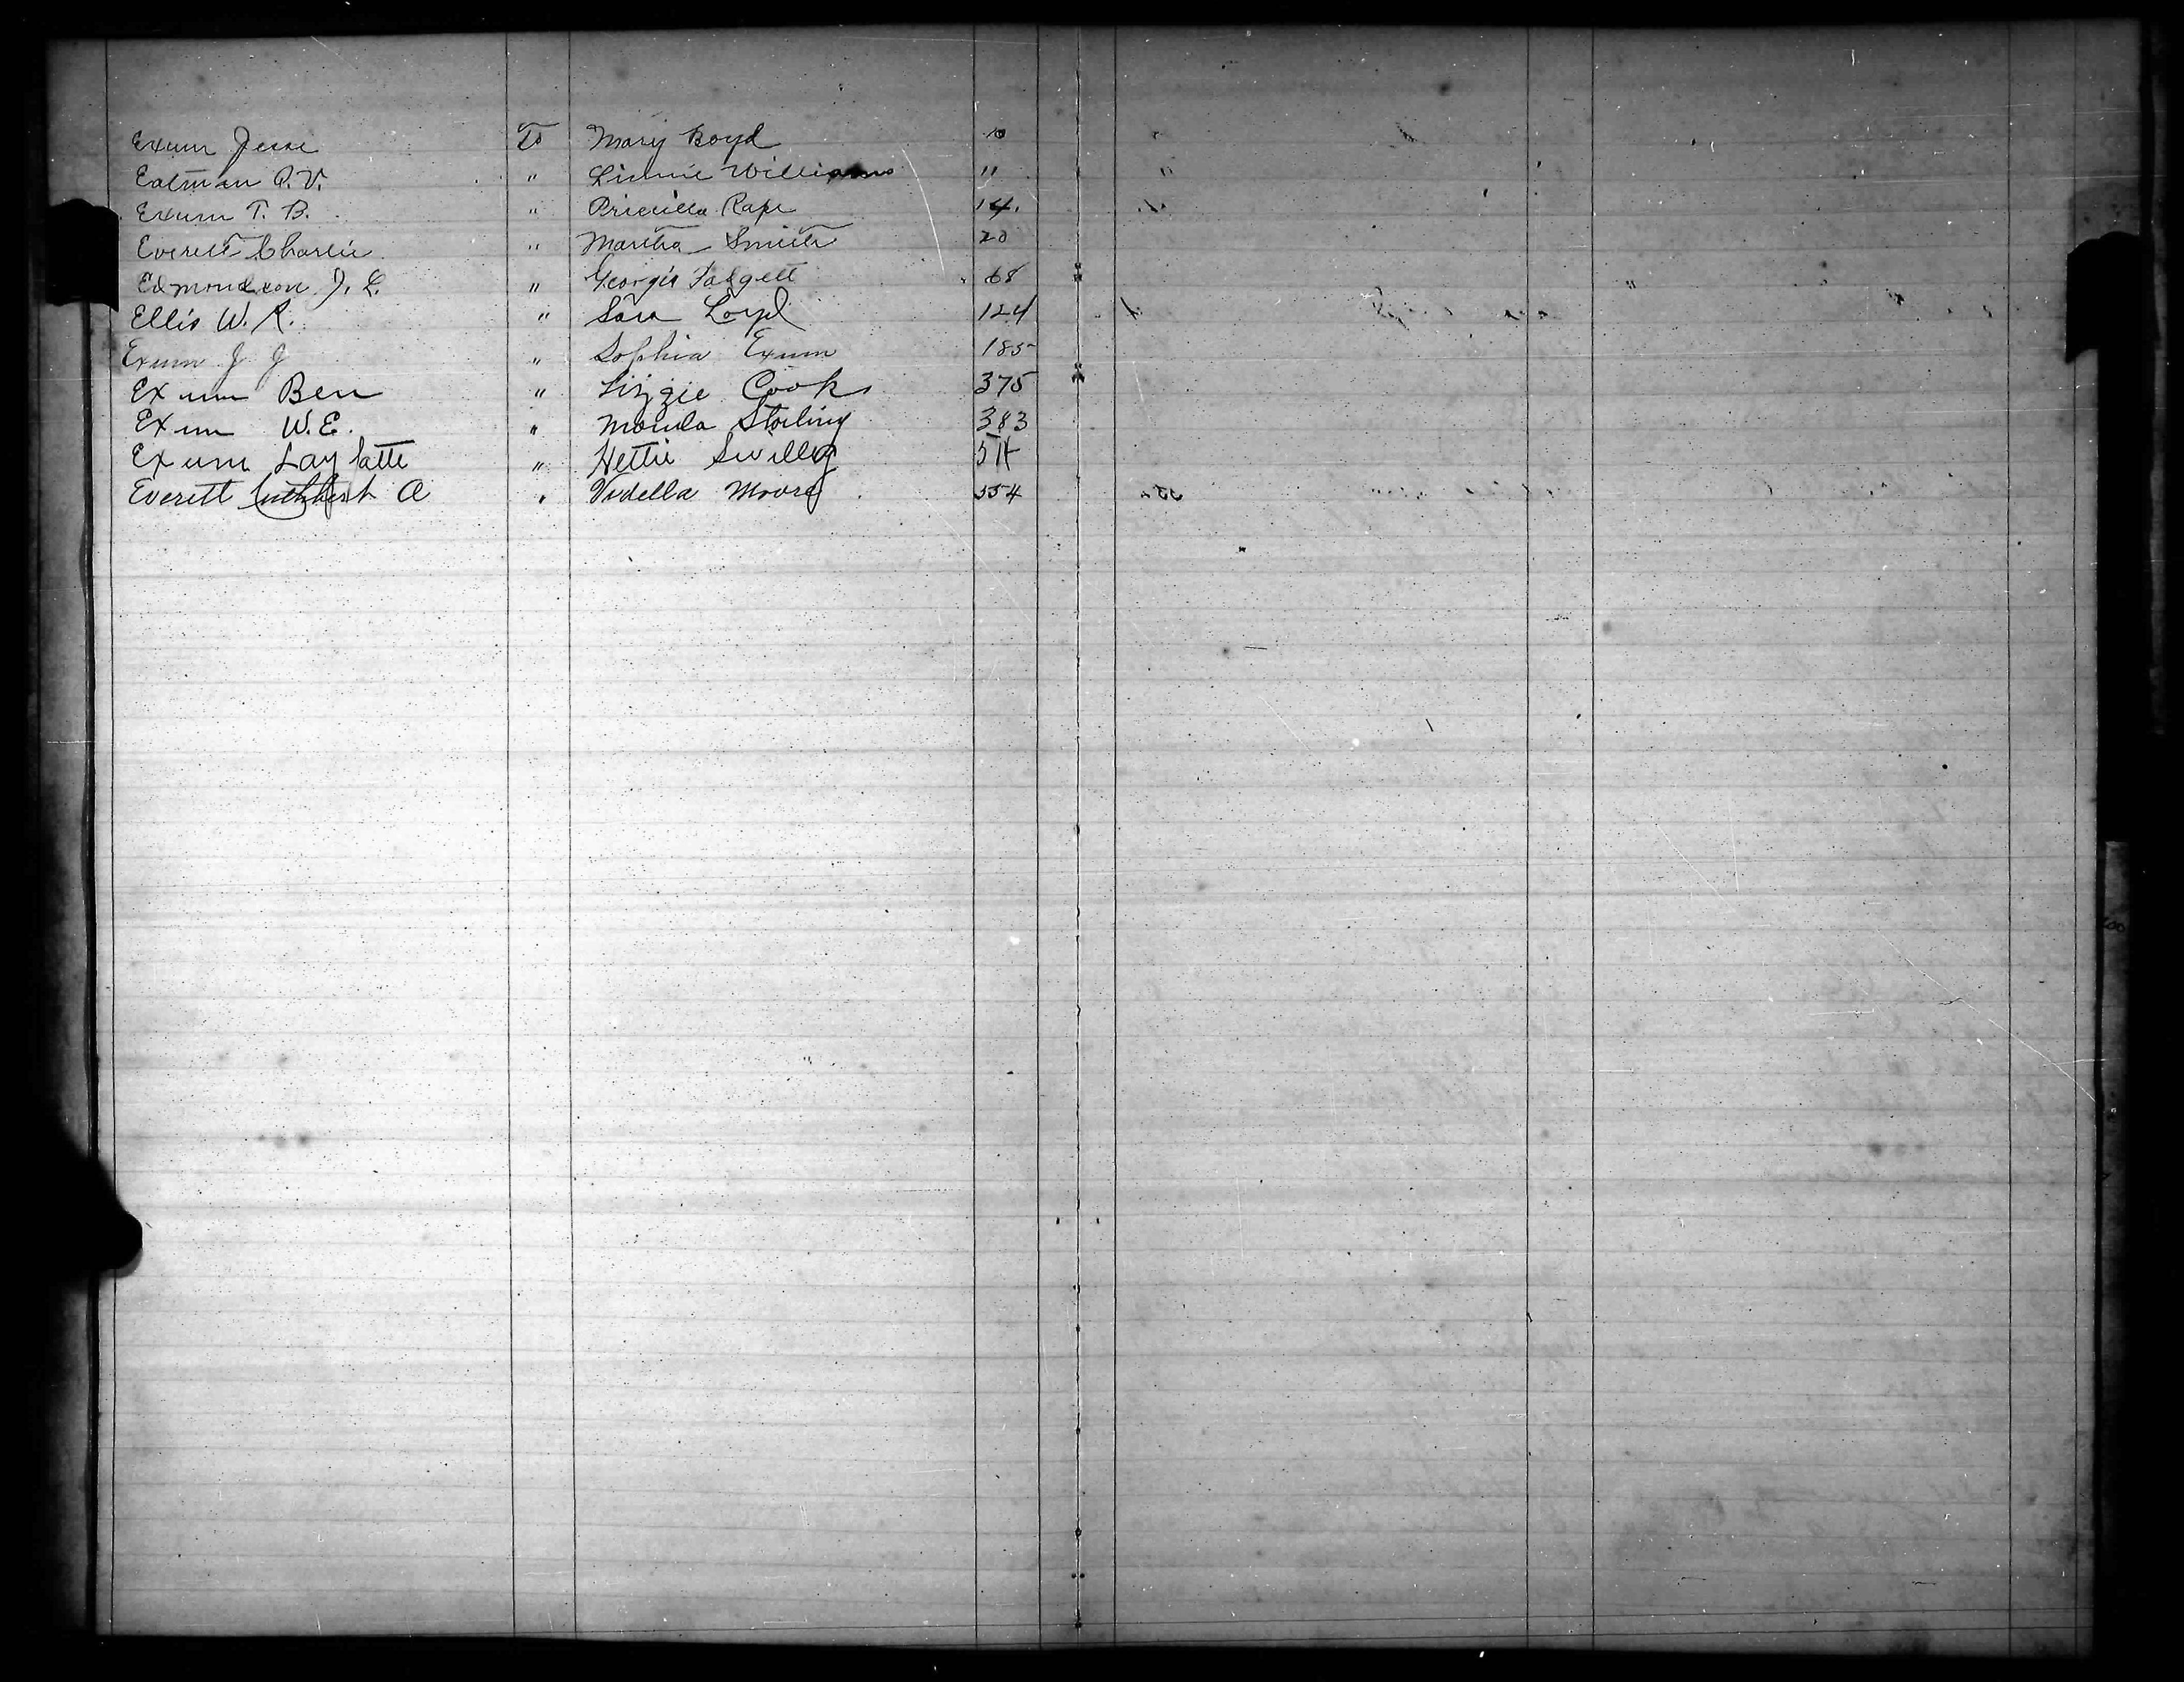 Exum Jesse To Mary Boyd 10
Eatman A.V. " Linnie Williams 11
Exum T. B. " Pricilla Rape 14.
Everett Charlie " Martha Smith 20
Edmondson J. L. " Georgia Padgett 68
Ellis W. R. " Sara Loyd 124
Exum J J " Sophia Exum 185
Exum Ben " Lizzie Cook 375
Exum W.E. " Starling 383
Exum Lay fatte " Hettie
Everett A " Vidella Moore 554